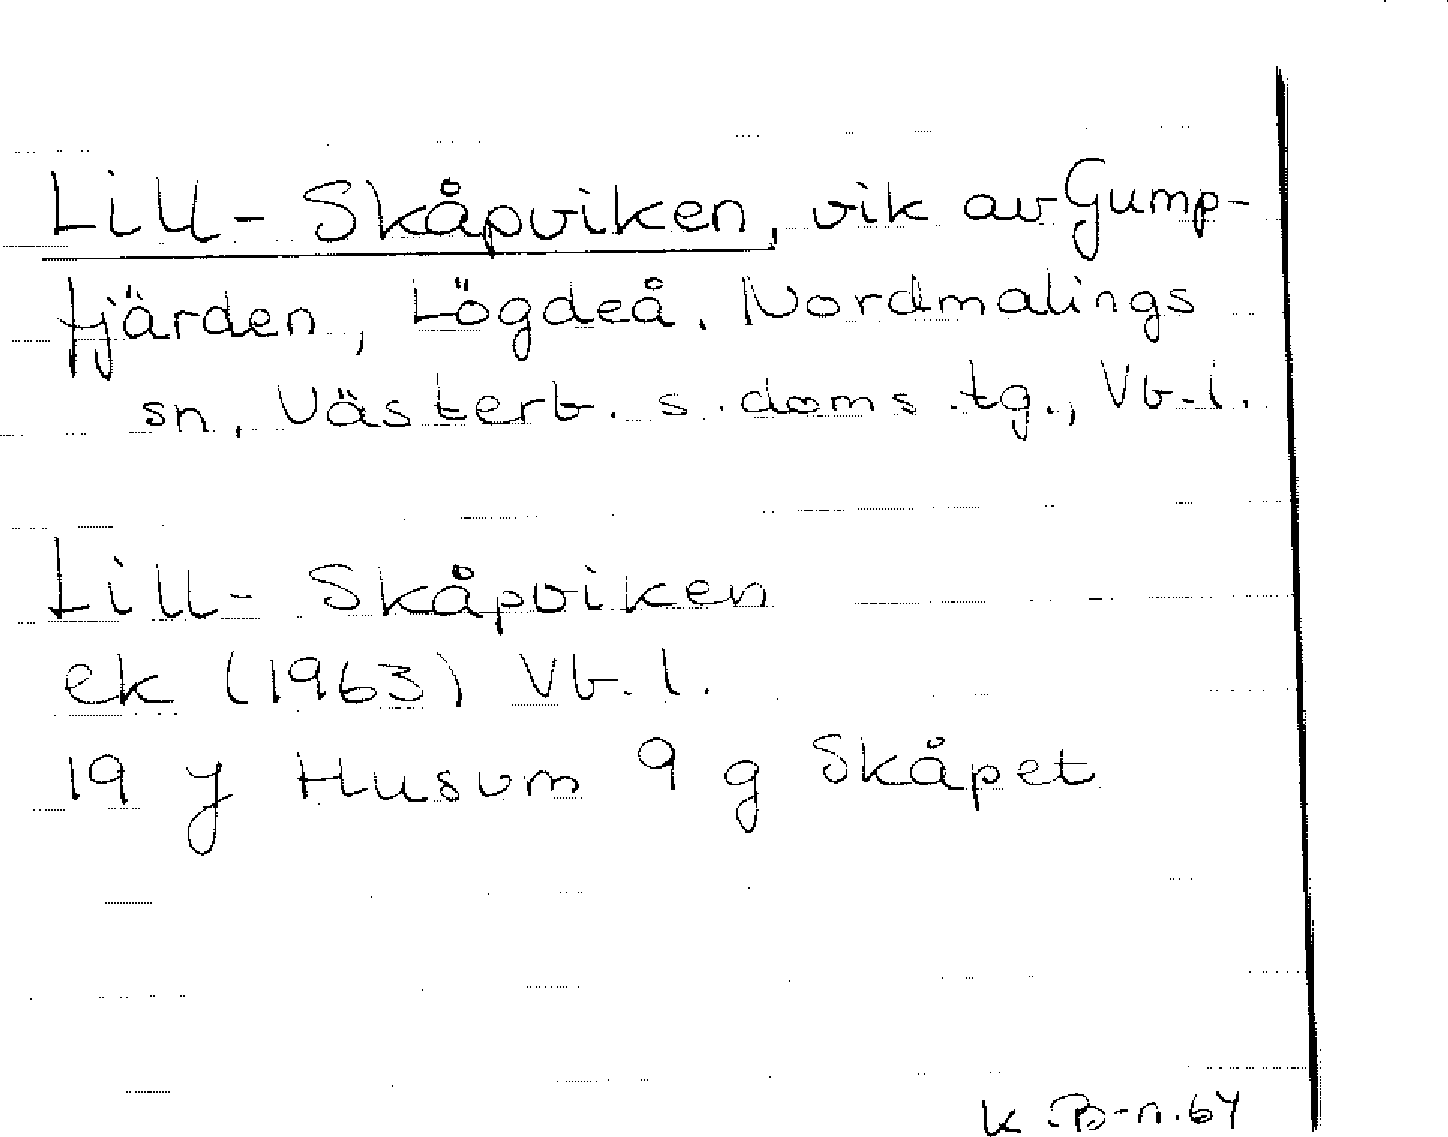 Lill-Skåpviken, vik av Gump-
fjärden, Lögdeå, Nordmalings
sn, Västerb. s. doms. tg., Vb. l.
Lill-Skåpviken
ek (1963) Vb. l.
19 y Husum 9 g Skåpet
K. B-n. 64